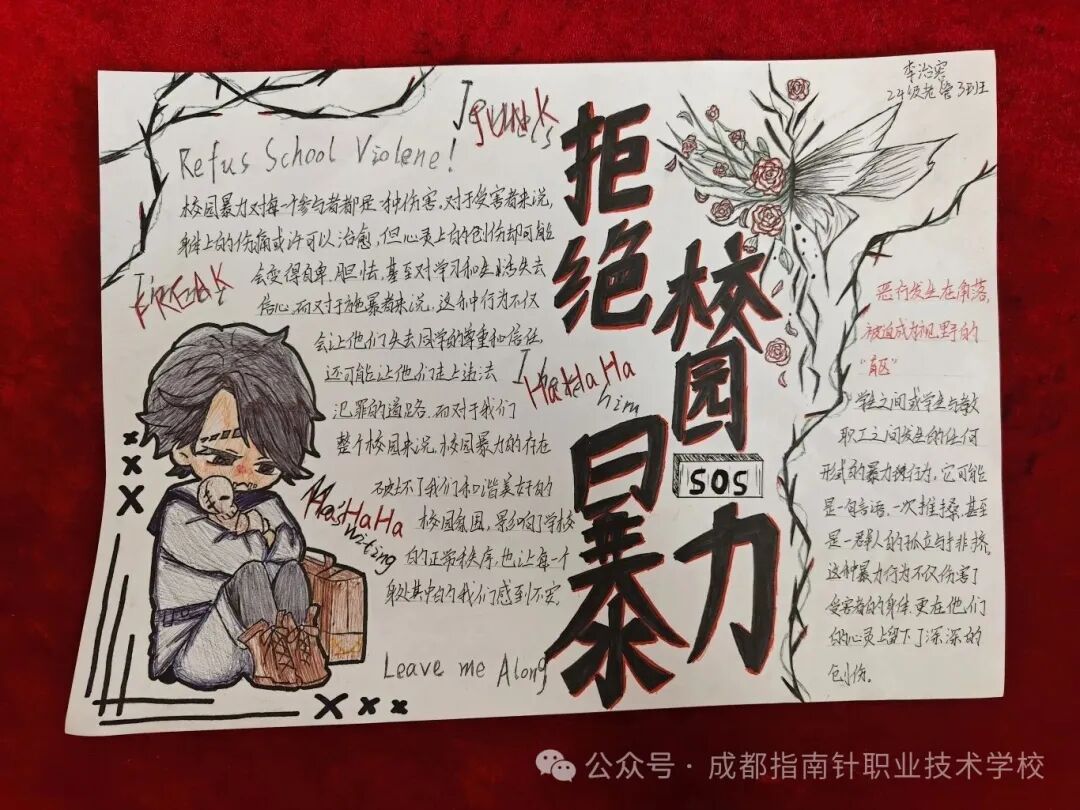 李治寒
24级老管3班
拒绝
校园
暴力
SOS
Refus School Violene!
JUNK
FREAK
HaHaHa
him
HaHaHa
writing
校园暴力对每一个参与者都是一种伤害,对于受害者来说,
身体上的伤痛或许可以治愈,但心灵上的创伤却可能
会变得自卑、胆怯,甚至对学习和生活失去
信心,而对于施暴者来说,这种行为不仅
会让他们失去同学的尊重和信任,
还可能让他们走上违法
犯罪的道路.而对于我们
整个校园来说,校园暴力的存在
破坏了我们和谐美好的
校园氛围,影响了学校
的正常秩序,也让每一个
身处其中的我们感到不安.
Leave me Along
恶行发生在角落,
被迫成为视野的
“盲区”
学生之间或学生与教
职工之间发生的任何
形式的暴力行为,它可能
是一句言语,一次推搡,甚至
是一群人的孤立与排挤,
这种暴力行为不仅伤害了
受害者的身体,更在他们
的心灵上留下了深深的
创伤。
公众号·成都指南针职业技术学校